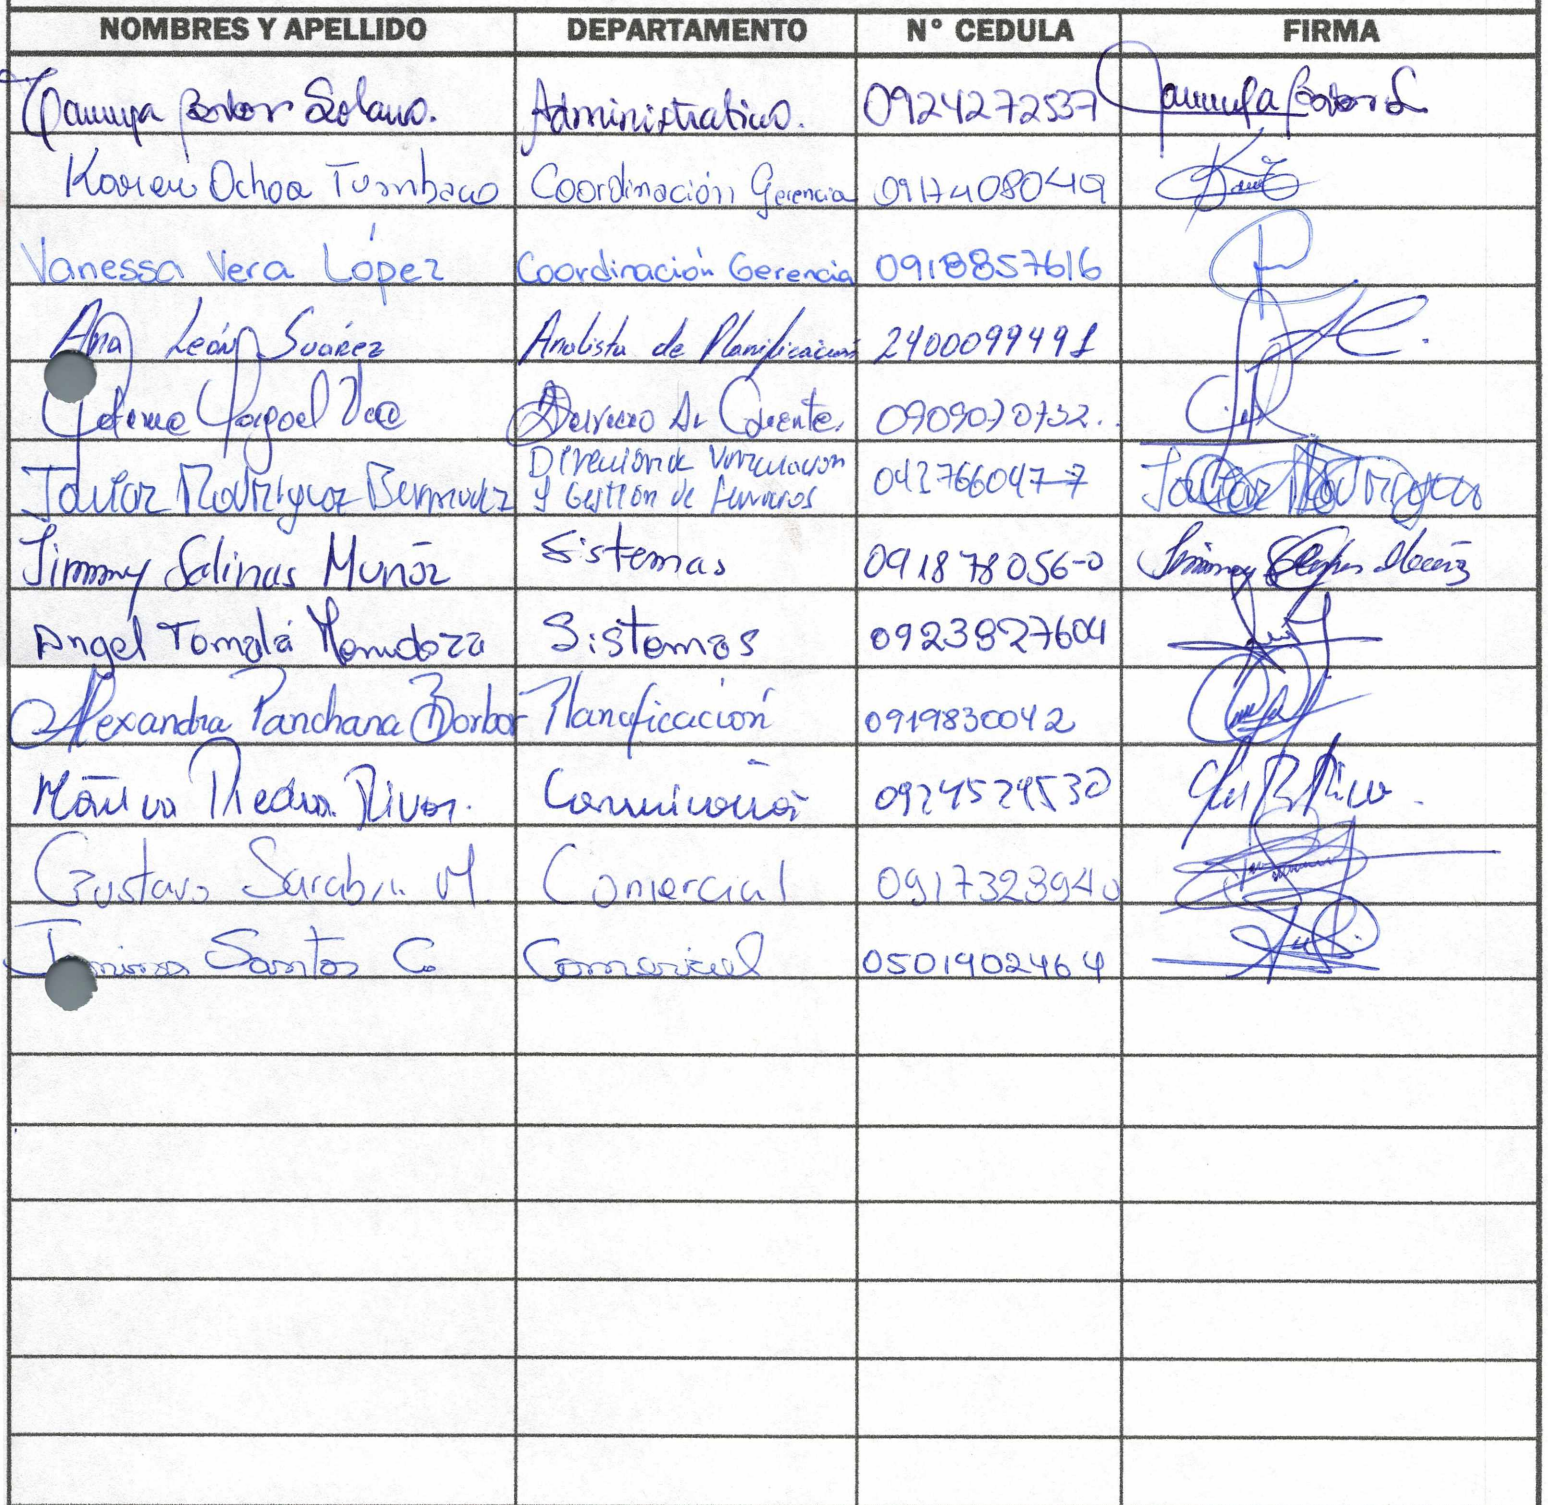 NOMBRES Y APELLIDO DEPARTAMENTO N° CEDULA FIRMA
Solano. Administrativo. 0924272537
Karen Ochoa Tumbaco Coordinación Gerencia 0917408049
Vanessa Vera López Coordinación Gerencia 0918857616
Ana León Suárez Analista de Planificación 2400099491
Servicio Al Cliente. 0909070732.
Javier Rodriguez Bermudez Dirección de Vinculación
y Gestión de 042766047-7 Javier Rodriguez
Jimmy Salinas Muñoz Sistemas 091878056-0 Jimmy Salinas Muñoz
Angel Tomalá Mendoza Sistemas 0923827604
Alexandra Panchana Borbor Planificación 0919830042
Mónica Piedra Rivas. Comunicación 0924529530
Gustavo Sarabia M. Comercial 0917323940
Santos C Comercial 0501902464